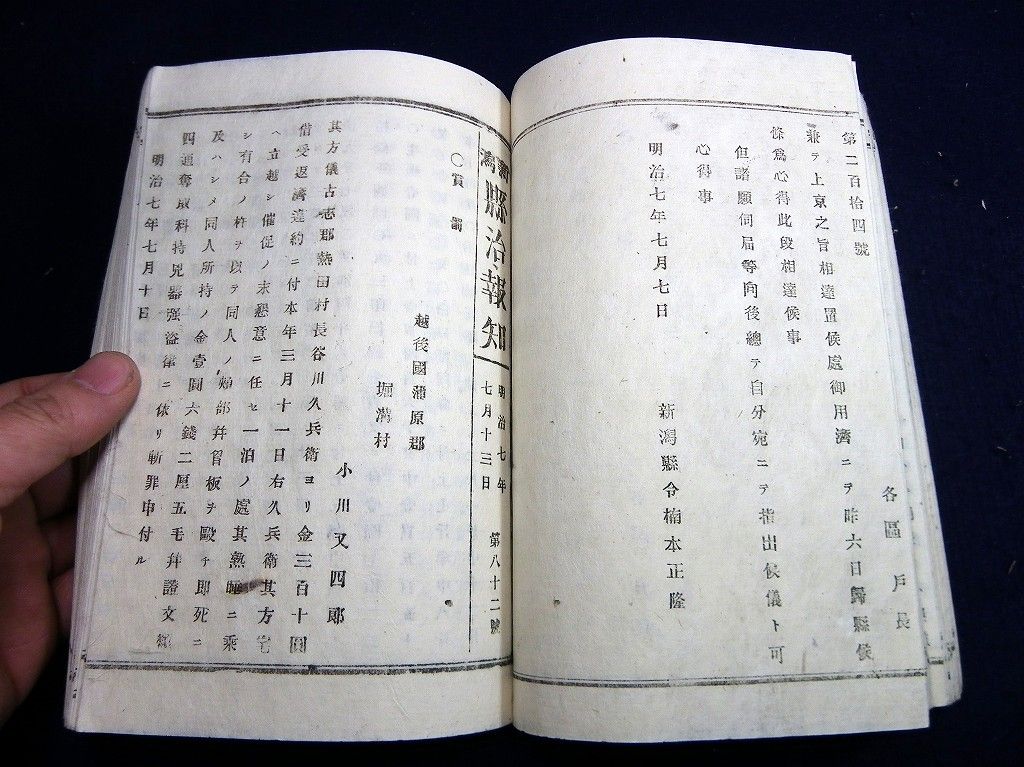 第二百拾四號
各區戶長
兼テ上京之旨相達置候處御用濟ニテ昨六日歸縣候
條爲心得此段相達候事
但諸願伺屆等向後總テ自分宛ニテ指出候儀ト可
心得事
明治七年七月七日
新潟縣令楠本正隆
新潟縣治報知
明治七年
七月十三日
第八十二號
○賞罰
越後國蒲原郡
堀溝村
小川又四郎
其方儀古志郡熱田村長谷川久兵衛ヨリ金三百十圓
借受返濟違約ニ付本年三月十一日右久兵衛其方宅
ヘ立越シ催促ノ末懇意ニ任セ一泊ノ處其熟睡ニ乘
シ有合ノ杵ヲ以テ同人ノ頰部幷胃板ヲ毆チ即死ニ
及ハシメ同人所持ノ金壹圓六錢二厘五毛幷證文
四通奪取科持兇器强盜律ニ依リ斬罪申付ル
明治七年七月十日